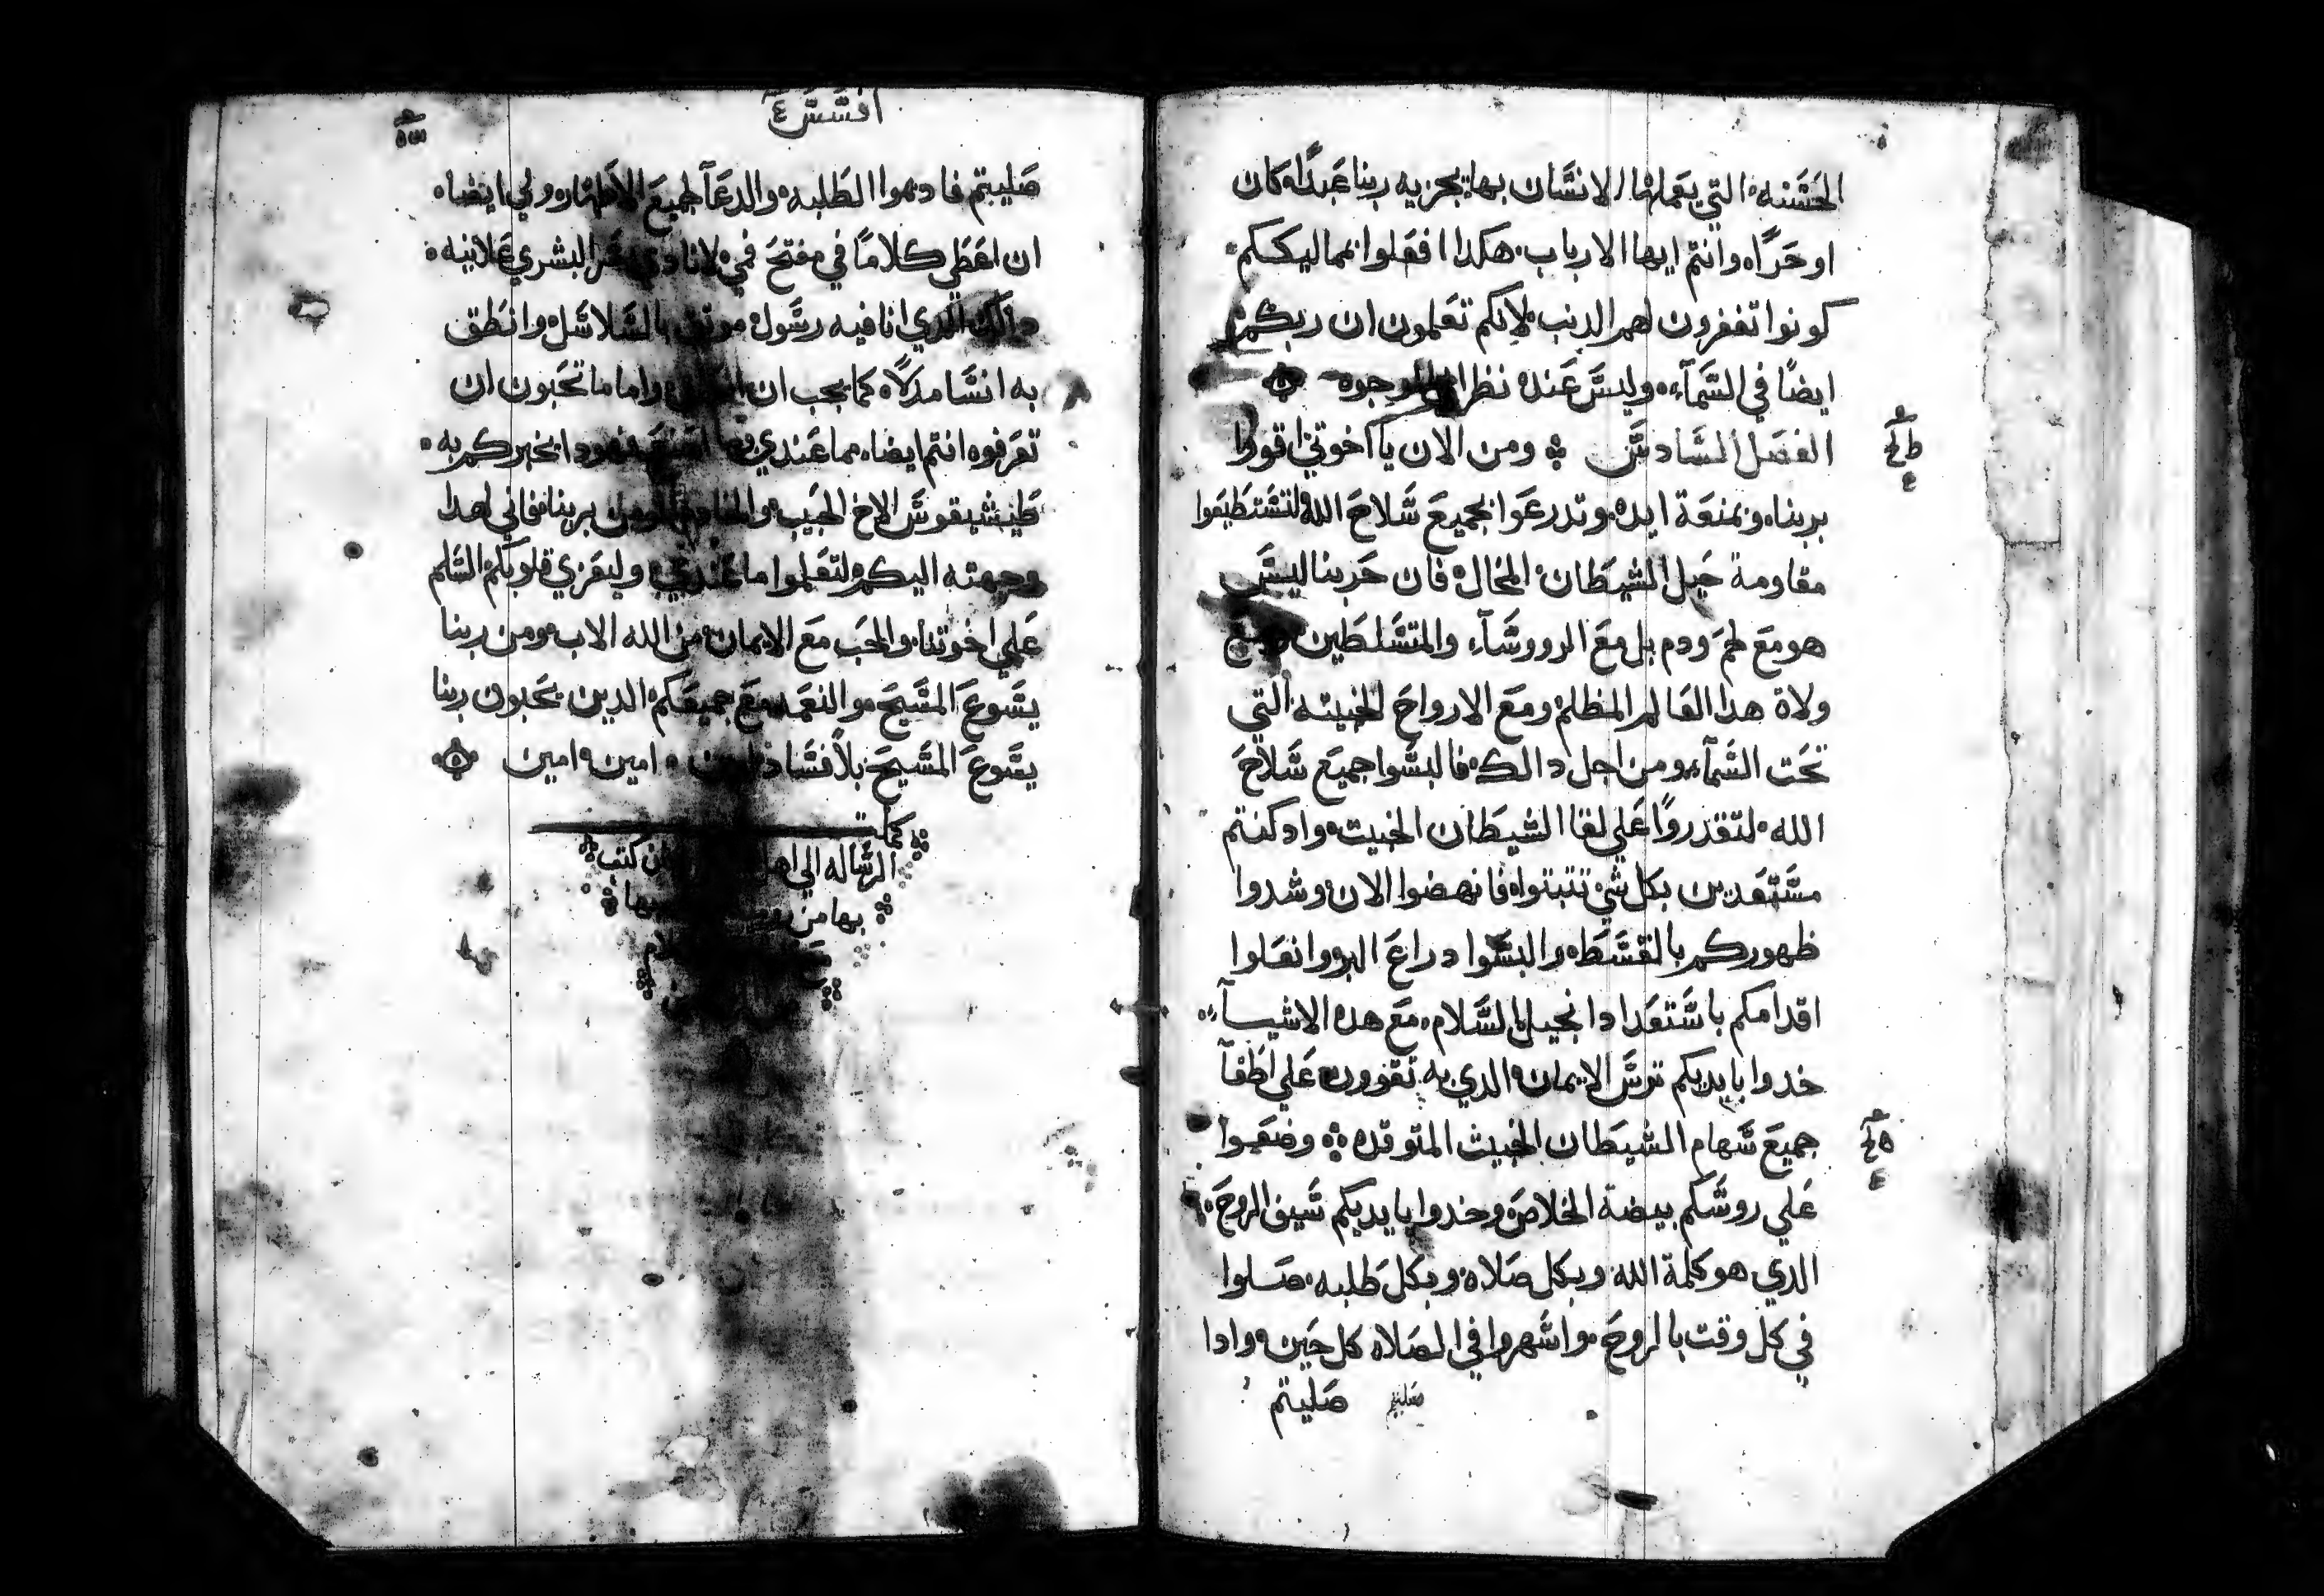 الحسنه التي يعملها الانسان بها يجزيه ربنا عبدًا كان
او حرًا وانتم ايها الارباب هكدا افعلوا بمماليككم
كونوا تغفرون لهم الدنب لانكم تعلمون ان ربكم
ايضًا في السمآء وليس عنده نظر الوجوه
الفصل السادس ومن الان يا اخوتي اقووا
بربنا وبمنعة ايده وتدرعوا بجميع سلاح الله لتستطيعوا
مقاومة حيل الشيطان المخال فان حربنا ليس
هو مع لحم ودم بل مع الرووسآء والمتسلطين ومع
ولاة هدا العالم المظلم ومع الارواح الخبيته التي
تحت السمآء ومن اجل دالك فالبسوا جميع سلاح
الله لتقدروا علي لقا الشيطان الخبيت وادكنتم
مستعدين بكل شي تتبتوا فانهضوا الان وشدوا
ظهوركم بالقسط والبسوا دراع البر وانعلوا
اقدامكم باستعداد انجيل السلام مع هده الاشيآء
خدوا بايديكم ترس الايمان الدي به تقوون علي اطفآ
جميع سهام الشيطان الخبيث المتوقده وضعوا
علي روسكم بيضة الخلاص وخدوا بايديكم سيف الروح
الدي هو كلمة الله وبكل صلاه وبكل طلبه صلوا
في كل وقت بالروح واسهروا في الصلاه كل حين وادا
صليتم صليتم
افسس ٤
صليتم فادىموا الطلبه والدعآ لجميع الاطهار ولي ايضا
ان اعطي كلامًا في مفتح فمي لانادي البشري علانيه
دالك الدي انا فيه رسول موثق بالسلاسل وانطق
به انسا مدلًا كما يجب ان واما ما تحبون ان
تعرفوه انتم ايضا مما عندي فهودا يخبركم به
طيشيقوس الاخ الحبيب والخادم المومن بربنا فاني لهدا
وجهته اليكم لتعلموا ما عندي وليعزي قلوبكم السلم
علي اخوتنا والحب مع الايمان من الله الاب ومن ربنا
يسوع المسيح والنعمه مع جميعكم الدين يحبون ربنا
يسوع المسيح بلا فساد امين امين
كملت
الرساله الي كتب
بها من